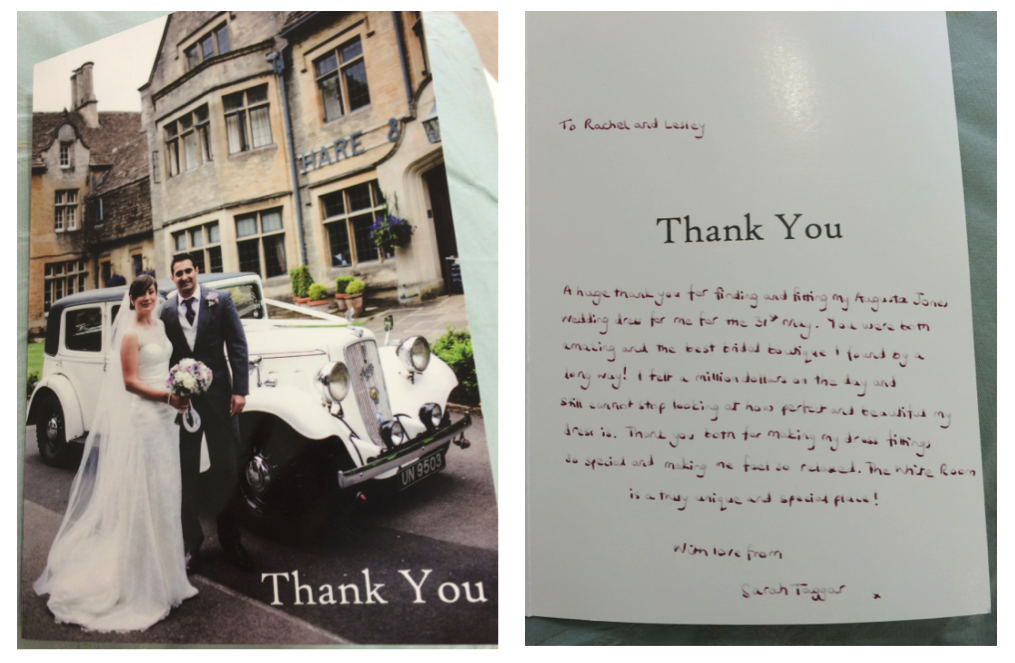 HARE & W
UN 9503
Thank You
To Rachel and Lesley
Thank You
A huge thank you for finding and fitting my Augusta Jones
wedding dress for me for the 31st May. You were both
amazing and the best bridal boutique I found by a
long way! I felt a million dollars on the day and
still cannot stop looking at how perfect and beautiful my
dress is. Thank you both for making my dress fittings
so special and making me feel so relaxed. The White Room
is a truly unique and special place!
With love from
Sarah Taggar x